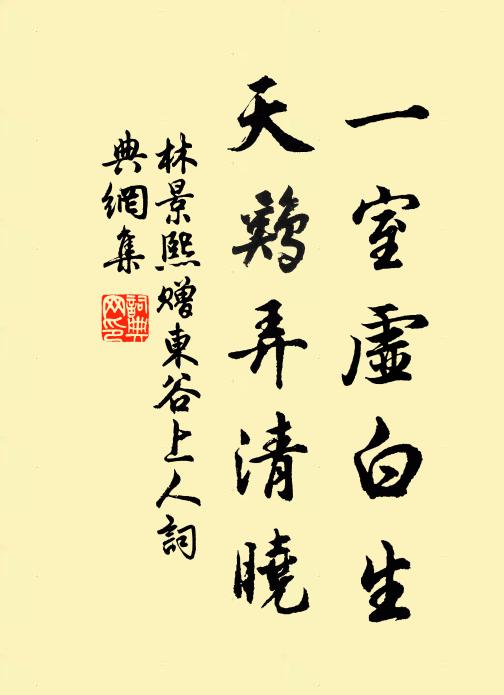 一室虛白生
天鷄弄清曉
林景熙贈東谷上人詞
典網集
詞典網印